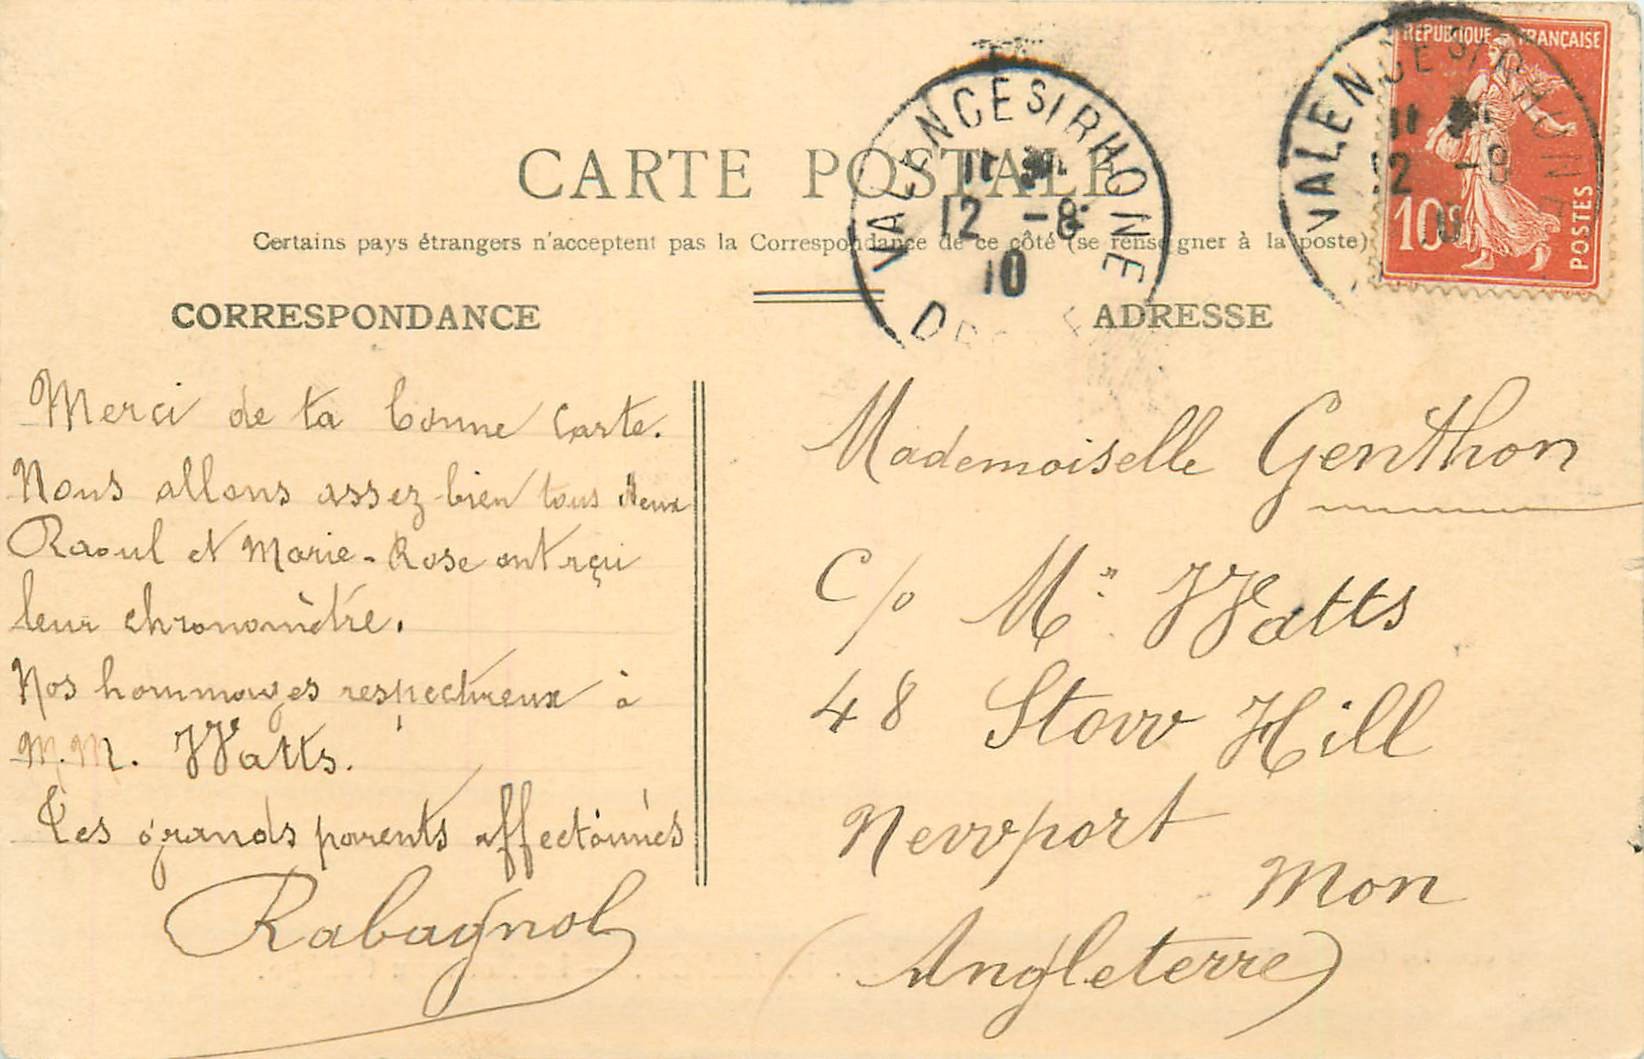 RÉPUBLIQUE FRANÇAISE
10c
POSTES
VALENCE S/ RHONE
12 -8
10
VALENCE S/ RHONE
12 -8
10
CARTE POSTALE
Certains pays étrangers n'acceptent pas la Correspondance de ce côté (se renseigner à la poste)
CORRESPONDANCE
ADRESSE
Merci de ta bonne Carte.
Nous allons assez bien tous deux
Raoul et Marie-Rose ont rçu
leur chronomètre.
Nos hommages respectueux à
M.M. Watts.
Tes grands parents affectionnés
Rabagnol
Mademoiselle Genthon
C/o Mr. Watts
48 Stow Hill
Newport
Mon
(Angleterre)